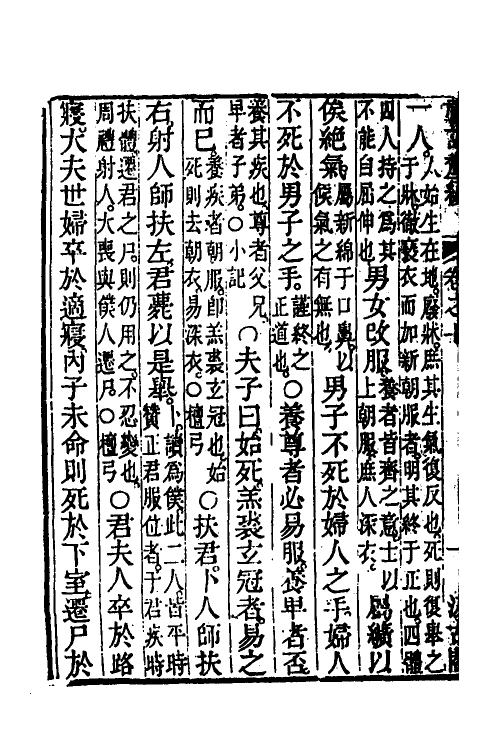 卷之十
汲古閣
一人。人始生在地。廢牀。庶其生氣復反也。死則復舉之于牀。徹褻衣而加新朝服者。明其終于正也。四體
四人持之。爲其不能自屈伸也。男女改服。養者皆齊之意。士以上朝服。庶人深衣。屬纊以
俟絕氣。屬新綿于口鼻。以候氣之有無也。男子不死於婦人之手。婦人
不死於男子之手。謹終之正道也。○養尊者必易服。養卑者否。
養其疾也。尊者父兄。卑者子弟。○小記○夫子曰。始死。羔裘玄冠者。易之
而已。養疾者朝服。卽羔裘玄冠也。始死則去朝衣。易深衣。○檀弓○扶君。卜人師扶
右。射人師扶左。君薨以是舉。卜讀爲僕。此二人。皆平時贊正君服位者。于君疾時
扶體。遷君之尸。則仍用之。不忍變也。周禮射人。大喪與僕人遷尸。○檀弓○君夫人卒於路
寢。大夫世婦卒於適寢。內子未命則死於下室。遷尸於